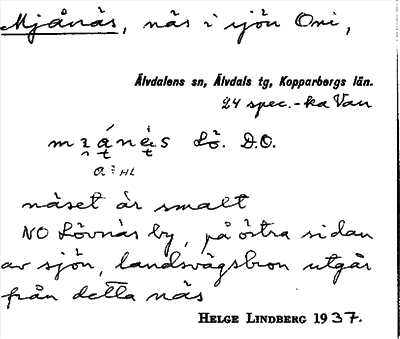 Mjånäs, näs i sjön Orsi,
Älvdalens sn, Älvdals tg, Kopparbergs län.
24 spec.-ka Van
Lö. D.O.
näset är smalt
NO Lövnäs by, på östra sidan
av sjön, landsvägsbron utgår
från detta näs
HELGE LINDBERG 1937.